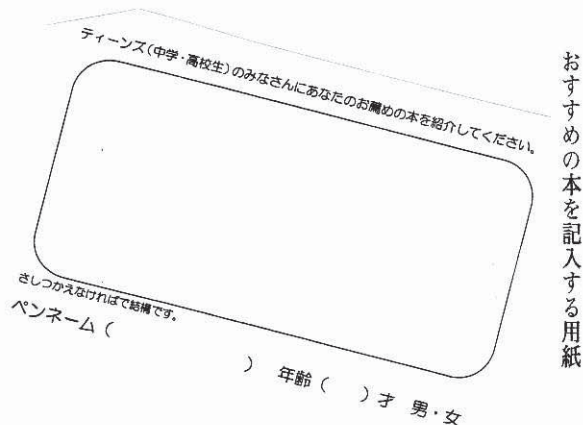 おすすめの本を記入する用紙
ティーンズ(中学・高校生)のみなさんにあなたのお薦めの本を紹介してください。
さしつかえなければで結構です。
ペンネーム( ) 年齢( )才 男・女